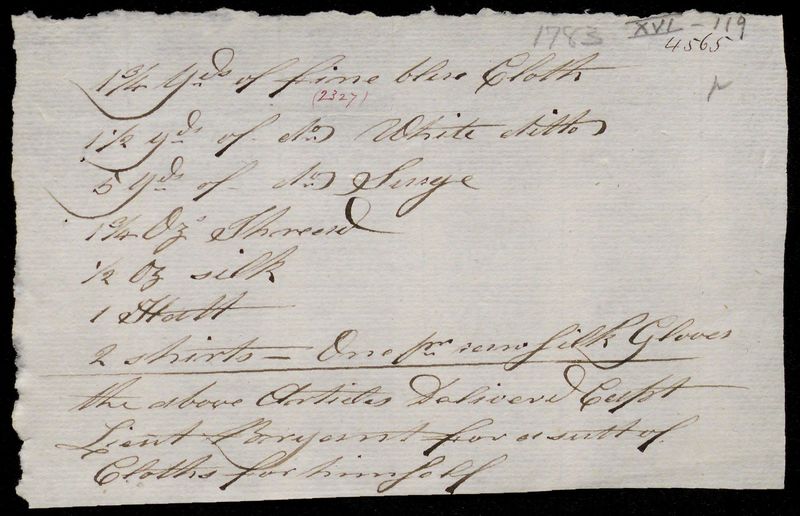 1783 XVI - 119
4565
1 3/4 Yds of fine blue Cloth
(2327)
1 1/2 yds of do White ditto
5 Yds of do Serge
1 3/4 Ozs Thread
1/2 Oz silk
1 Hatt
2 shirts — One pr silk Gloves
the above Articles Delivered Capt
Lieut Sargent for a sutt of
Cloths for himself